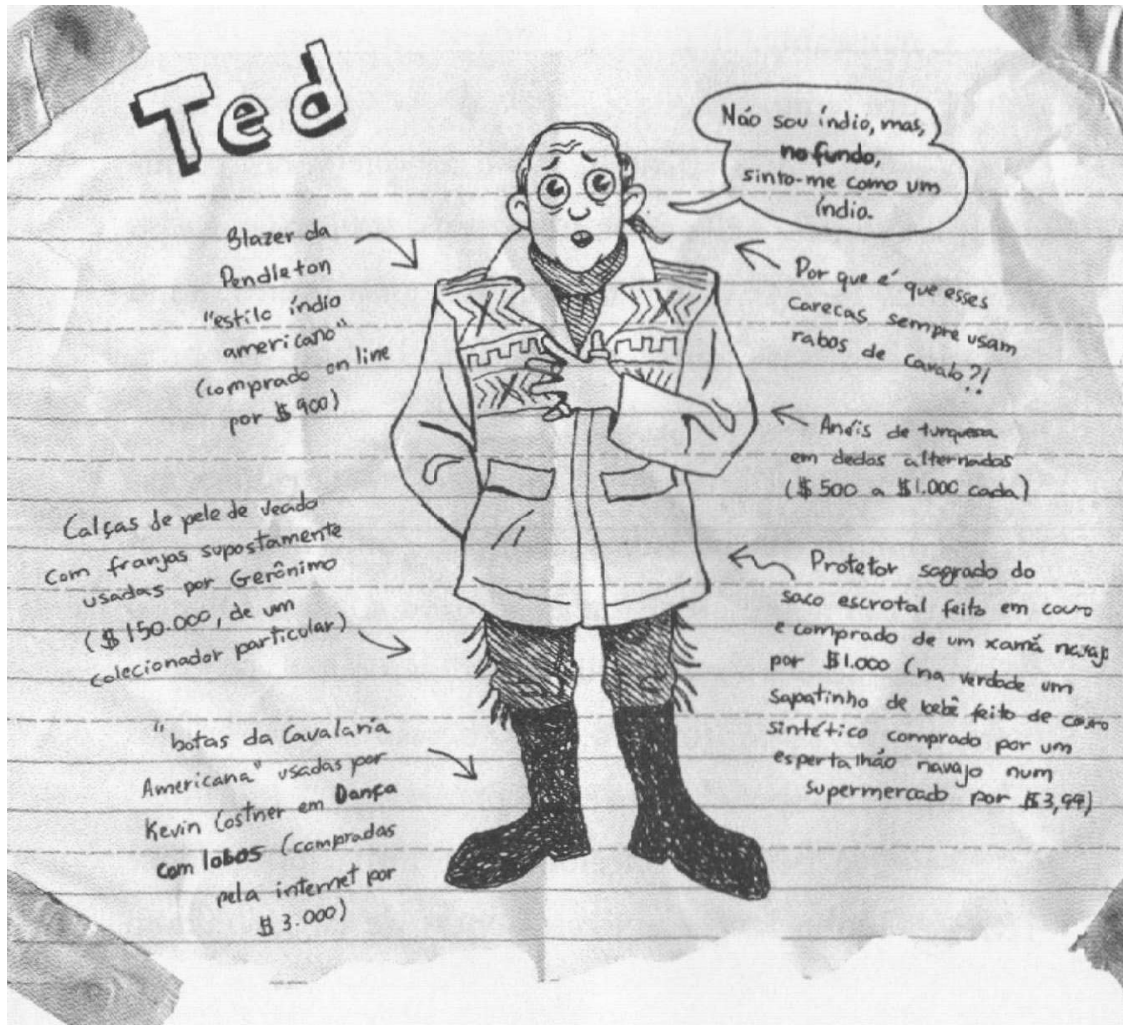 Ted
Não sou índio, mas,
no fundo,
sinto-me como um
índio.
Blazer da
Pendleton
"estilo índio
americano"
(comprado on line
por $900)
Por que é que esses
carecas sempre usam
rabos de cavalo?!
Anéis de turquesa
em dedos alternados
($500 a $1.000 cada)
Calças de pele de veado
com franjas supostamente
usadas por Gerônimo
($150.000, de um
colecionador particular)
Protetor sagrado do
saco escrotal feito em couro
e comprado de um xamã navajo
por $1.000 (na verdade um
sapatinho de bebê feito de couro
sintético comprado por um
espertalhão navajo num
supermercado por $3,99)
"botas da Cavalaria
Americana" usadas por
Kevin Costner em Dança
com lobos (compradas
pela internet por
$3.000)